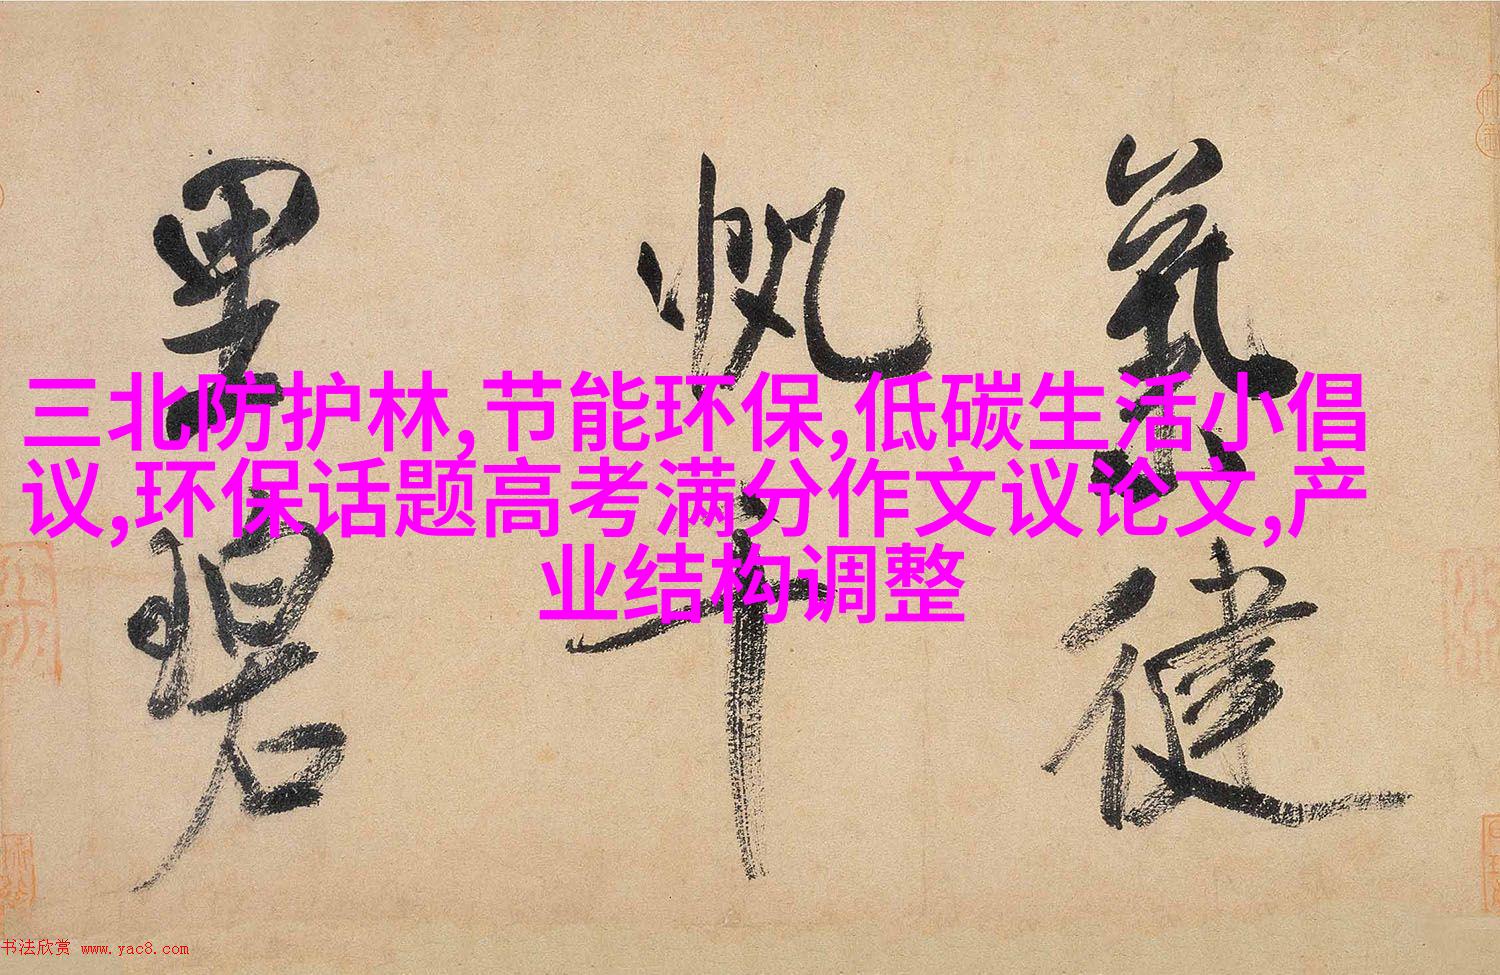 氣健
帆千
里碧
三北防护林,节能环保,低碳生活小倡
议,环保话题高考满分作文议论文,产
业结构调整
书法欣赏 www.yac8.com